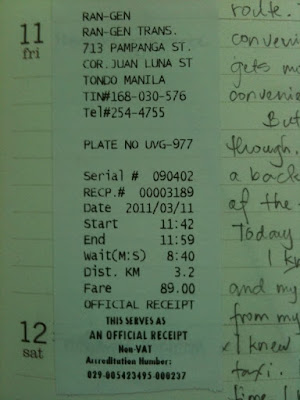 11
fri
RAN-GEN
RAN-GEN TRANS.
713 PAMPANGA ST.
COR.JUAN LUNA ST
TONDO MANILA
TIN#168-030-576
Tel#254-4755
PLATE NO UVG-977
Serial # 090402
RECP.# 00003189
Date 2011/03/11
Start 11:42
End 11:59
Wait(M:S) 8:40
Dist. KM 3.2
Fare 89.00
OFFICIAL RECEIPT
THIS SERVES AS
AN OFFICIAL RECEIPT
Non-VAT
Accreditation Number:
029-005423495-000237
12
sat
route.
conveni
gets m
convenie
But
through.
a back
of the
Today
I kn
and my
from my
I knew
taxi.
time I